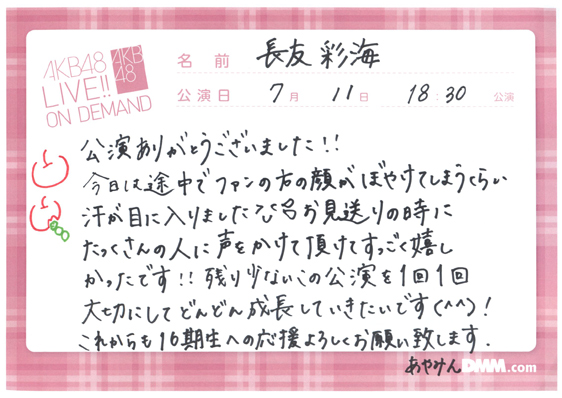 AKB48
LIVE!!
ON DEMAND
AKB
48
名前 長友彩海
公演日 7月 11日 18:30 公演
公演ありがとうございました!!
今日は途中でファンの方の顔がぼやけてしまうくらい
汗が目に入りました お見送りの時に
たっくさんの人に声をかけて頂けてすっごく嬉し
かったです!! 残り少ないこの公演を1回1回
大切にしてどんどん成長していきたいです(^^)!
これからも16期生への応援よろしくお願い致します.
あやみん DMM.com